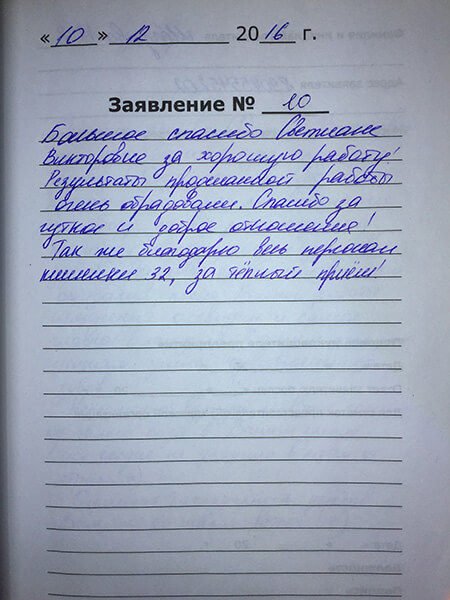 « 10 » 12 2016 г.
Заявление № 10
Большое спасибо Светлане
Викторовне за хорошую работу!
Результаты проделанной работы
очень обрадовали. Спасибо за
чуткое и доброе отношение!
Так же благодарю весь персонал
клиники 32, за тёплый приём!